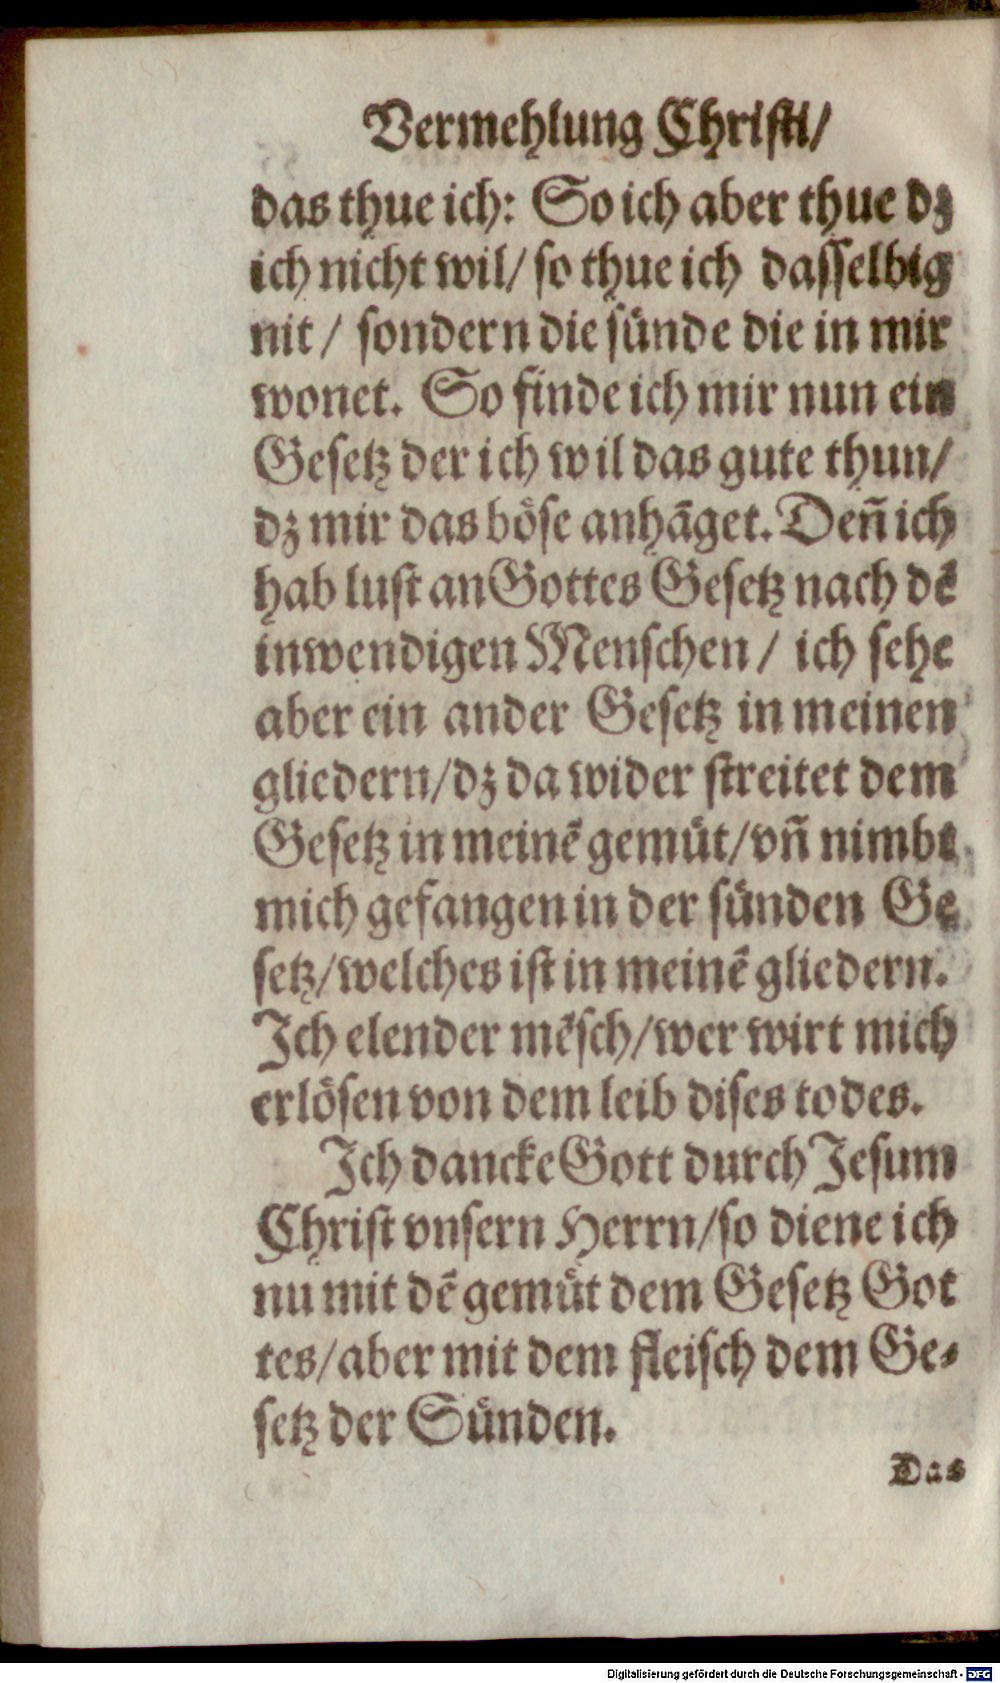 Vermehlung Christi/
das thue ich: So ich aber thue dz
ich nicht wil/ so thue ich dasselbig
nit/ sondern die sünde die in mir
wonet. So finde ich mir nun ein
Gesetz der ich wil das gute thun/
dz mir das böse anhãget. Deñ ich
hab lust an Gottes Gesetz nach dẽ
inwendigen Menschen/ ich sehe
aber ein ander Gesetz in meinen
gliedern/dz da wider streitet dem
Gesetz in meinẽ gemüt/vñ nimbt
mich gefangen in der sünden Ge
setz/welches ist in meinẽ gliedern.
Ich elender mẽsch/wer wirt mich
erlösen von dem leib dises todes.
Ich dancke Gott durch Jesum
Christ vnsern Herrn/so diene ich
nu mit dẽ gemüt dem Gesetz Got
tes/aber mit dem fleisch dem Ge-
setz der Sünden.
Das
Digitalisierung gefördert durch die Deutsche Forschungsgemeinschaft - DFG